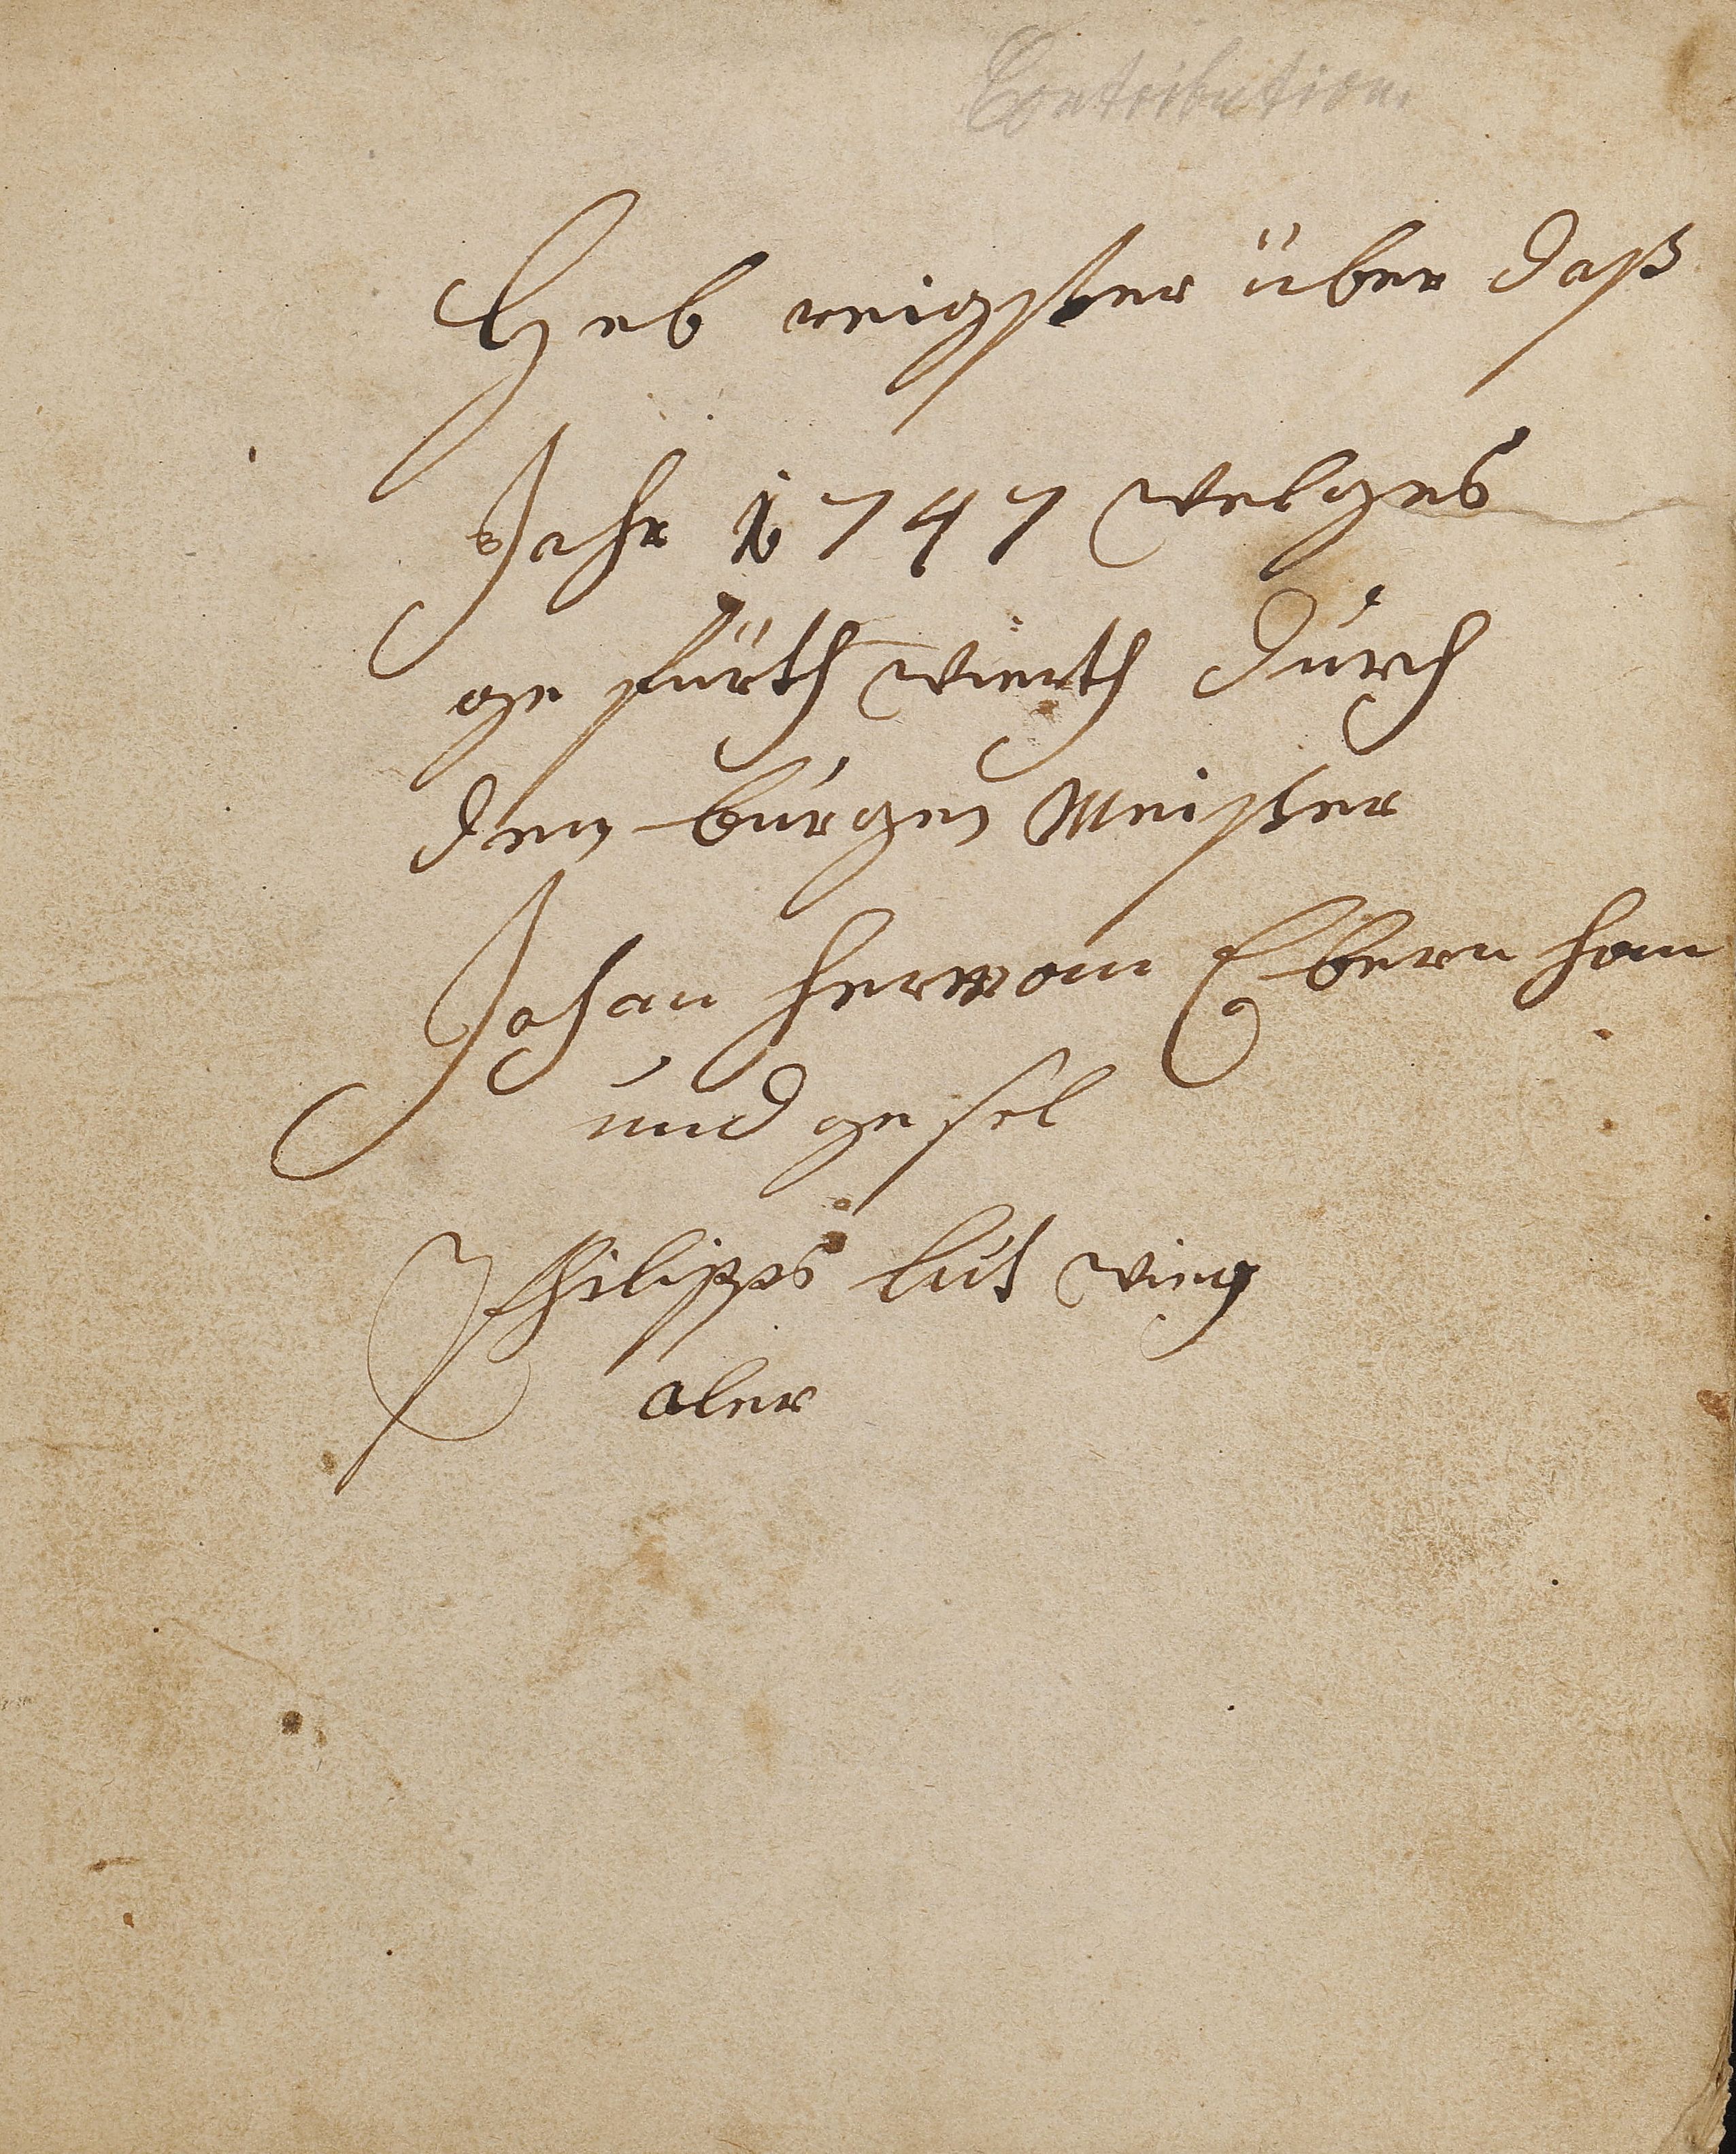 Contribution.
Heb reigster über daß
Jahr 1747 welges
ge fürth wierth durch
den burgen Meister
Johan herman Ebern han
und gesel
Philipps lut wieg
aler